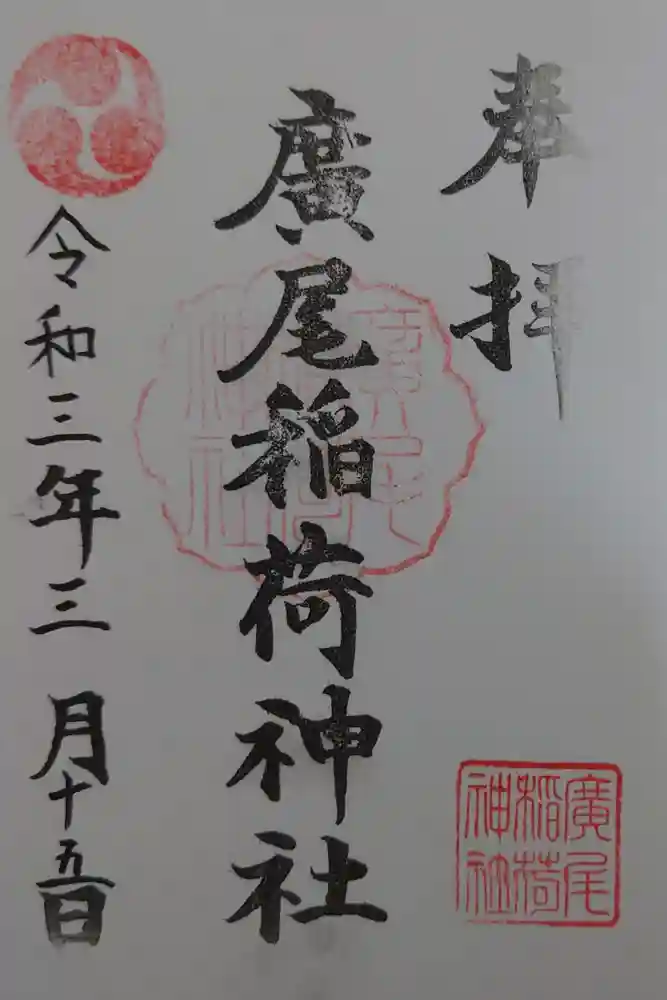 奉拝
廣尾稲荷神社
令和三年三月十五日
廣尾
稲荷
神社
廣尾
稲荷
神社